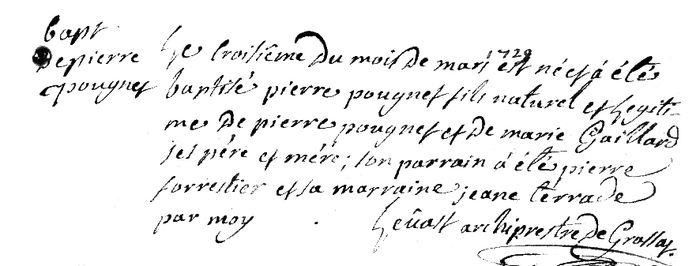 bapt
de pierre
pougnet
Le troisiême du mois de mars 1729 est né et á étè
baptisé pierre pougnet fils naturel et legiti-
me De pierre pougnet et de marie Gaillard
ses pére et mére; son parrain á étè pierre
forrestier et sa marraine jeane terrade
par moy
archiprestre de